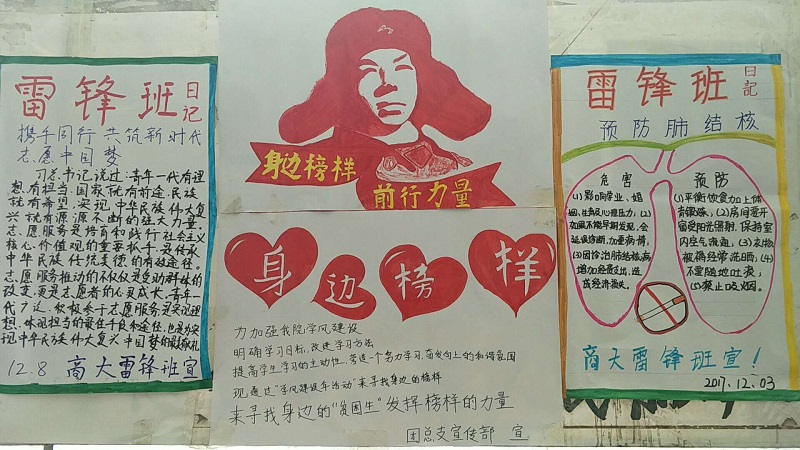 雷锋班
日记
携手同行 共筑新时代
志愿中国梦
习总书记说过:青年一代有理
想,有担当,国家就有前途,民族
就有希望,实现中华民族伟大复
兴就有源源不断的强大力量。
志愿服务是培育和践行社会主义
核心价值观的重要抓手,是传承
中华民族传统美德的有效途径。
志愿服务推动的不仅仅是受助群体的
改变,更是志愿者的心灵成长。青年一
代
现中华民族伟大复兴中国梦的
12.8 商大雷锋班宣
身边榜样
前行力量
身边榜样
为加强我院学风建设
明确学习目标,改进学习方法
提高学生学习的主动性,营造一个努力学习,奋发向上的和谐氛围
现通过"学风建设年活动"来寻找身边的榜样
来寻找身边的"贫困生"发挥榜样的力量
团总支宣传部 宣
雷锋班
日記
预防肺结核
危害
(1)影响学业、婚
姻、生育及心理压力;(2)
如果不能早期发现,会
延误诊断,加重病情;
(3)因诊治肺结核病
增加经费支出,造
成经济损失。
预防
(1)平衡饮食加上体
育锻炼;(2)房间要开
窗受阳光照射,保持室
内空气流通;(3)衣物
被褥经常洗晒;(4)
不要随地吐痰;
(5)禁止吸烟。
商大雷锋班宣!
2017.12.03